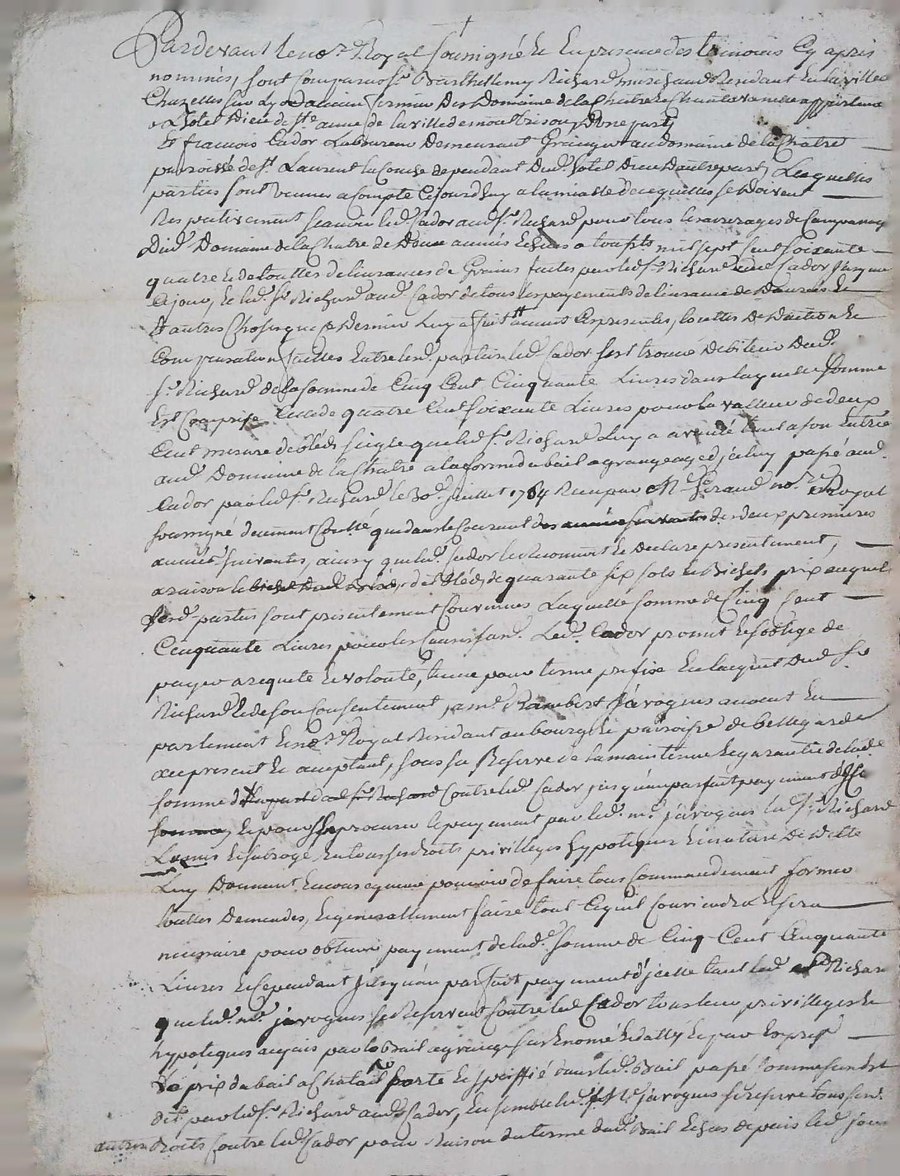 Pardevant le no.re Royal soussigné et en presence des temoins cy apres
nommés, sont comparus s.r Barthelemy Richard marchand Residant en la ville
Chazelles sur Lyon ancien fermier des Domaine de la Chatre et Chantevent appartenant
a L'hotel Dieu de S.te anne de la ville de montbrison D'une part,
Et francois Cador Laboureur Demeurant Granger au domaine de la Chatre
paroisse de S.t Laurent la Conche dependant dud. hotel Dieu D'autre part, Lesquelles
parties sont venues a Compte Cejourd'huy a l'amiable de ce qu'elles se doivent
Respectivement scavoir led. Cador aud. s.r Richard pour tous les arrerages de
Dud. Domaine de la Chatre de années Echues a mil sept cent soixante
quatre et de touttes delivrances de Grains faites par led. s.r Richard aud. Cador jusqu'a
Ce jour, et led. s.r Richard aud. Cador de tous les payements delivrance de Danrées et
Et autres choses que ce Dernier Luy a fait avant Ces presentes, touttes Deduction et
Compensation faittes entre les d. parties led. Cador s'est trouvé debiteur dud.
s.r Richard de la somme de Cinq Cent Cinquante Livres dans laquelle somme
Est Comprise Celle de quatre Cent soixante Livres pour la valleur de deux
Cent mesure de bled seigle que led. s.r Richard Luy a a son entrée
aud. Domaine de la Chatre a la forme du bail a grangeage d'iceluy passé aud.
Cador par led. s.r Richard le 30.e Juillet 1764 Recu par M.e Giraud no.re Royal
soussigné deument Controllé, qui dans le Courant des années suivantes des deux premieres
années suivantes, ainsy que led. Cador le Reconnoit et Declare presentement,
a raison de bled, de quarante six sols le Bichet, prix auquel
lesd. parties sont presentement Convenues Laquelle somme de Cinq Cent
Cinquante Livres pour les Causes susd. Led. Cador promet et s'oblige de
payer a requete et volonté, terme pour terme prefixe En l'acquit dud. s.r
Richard et de son Consentement, a M.e Rambert javogues avocat en
parlement et no.re Royal Residant au bourg et paroisse de bellegarde
icy present et acceptant, sous la Reserve de la maintenue et garantie de lad.
somme Contre led. Cador jusqu'au parfait payement d'icelle
somme, Et pour se procurer le payement par led. m.e javogues led. s.r Richard
L'a mis et subrogé en tous ses droits privilleges hypoteques
Luy Donnant, En consequence pouvoir de faire tous Commandement former
touttes Demandes, Et generallement faire tout Ce qu'il conviendra et sera
necessaire pour obtenir payement de lad. somme de Cinq Cent Cinquante
Livres et Cependant jusqu'au parfait payement d'icelle tant led. s.r Richard
que led. m.e javogues se Reservent Contre led. Cador tous leur privilleges et
hypoteques acquis par le Bail a grange
prix du bail a porté et speciffié dans led. Bail passé comme sus est
dit par led. s.r Richard aud. Cador, Ensemble led. M.e javogues se reserve tous ses
autres Droits Contre led. Cador pour Raison du terme dud. Bail Echus depuis led. jour